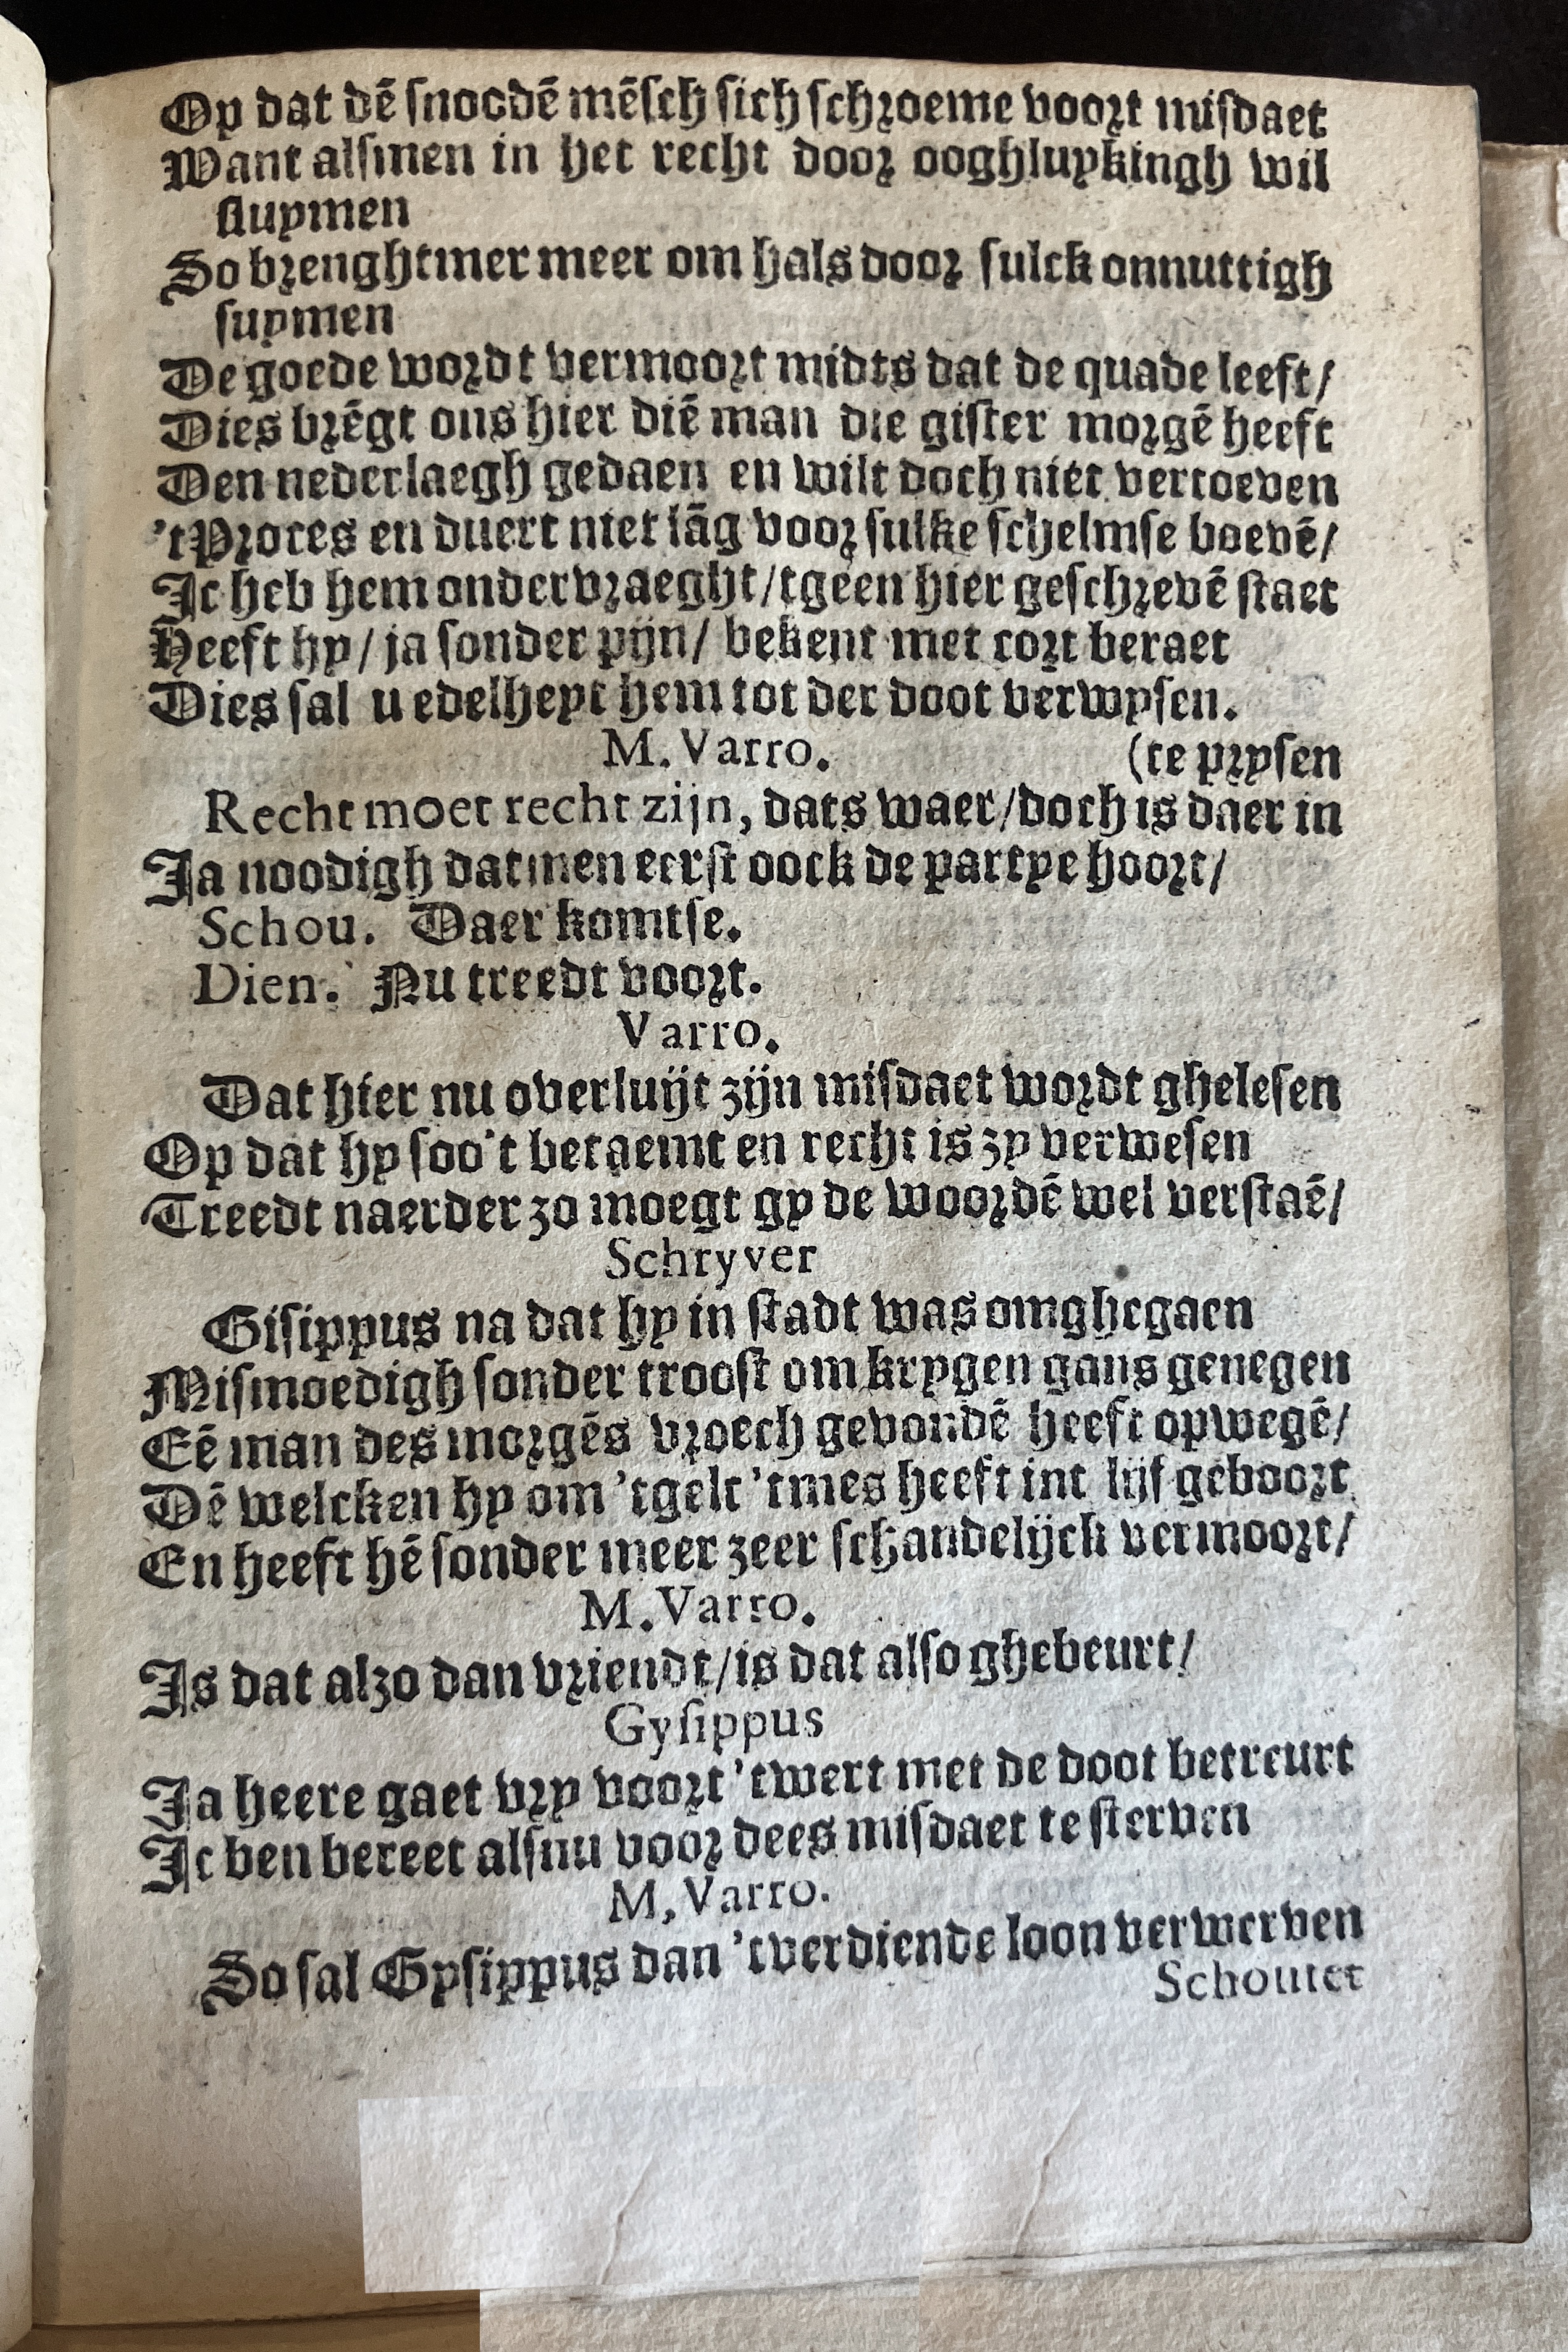 Op dat dē snoodē mēsch sich schroeme voort misdaet
Want alsmen in het recht door ooghluykingh wil
sluymen
So brenghtmer meer om hals door sulck onnuttigh
suymen
De goede wordt vermoort midts dat de quade leeft/
Dies brēgt ons hier diē man die gister morgē heeft
Den nederlaegh gedaen en wilt doch niet vertoeven
't Proces en duert niet lāg voor sulke schelmse boevē/
Ic heb hem ondervraeght/tgeen hier geschrevē staet
Heeft hy/ ja sonder pijn/ bekent met cort beraet
Dies sal u edelheyt hem tot der doot verwysen.
M. Varro. (te prysen
Recht moet recht zijn, dats waer/doch is daer in
Ja noodigh datmen eerst oock de partye hoort/
Schou. Daer komtse.
Dien. Nu treedt voort.
Varro.
Dat hier nu overluijt zijn misdaet wordt ghelesen
Op dat hy soo't betaemt en recht is zy verwesen
Treedt naerder zo moegt gy de woordē wel verstaē/
Schryver
Gisippus na dat hy in stadt was omghegaen
Mismoedigh sonder troost om krygen gans genegen
Eē man des morgēs vroech gevondē heeft opwegē/
Dē welcken hy om 'tgelt 'tmes heeft int lijf geboort
En heeft hē sonder meer zeer schandelijck vermoort/
M. Varro.
Is dat alzo dan vriendt/is dat also ghebeurt/
Gysippus
Ja heere gaet vry voort 'twert met de doot betreurt
Ic ben bereet alsnu voor dees misdaet te sterven
M, Varro.
So sal Gysippus dan 'tverdiende loon verwerven
Schoutet